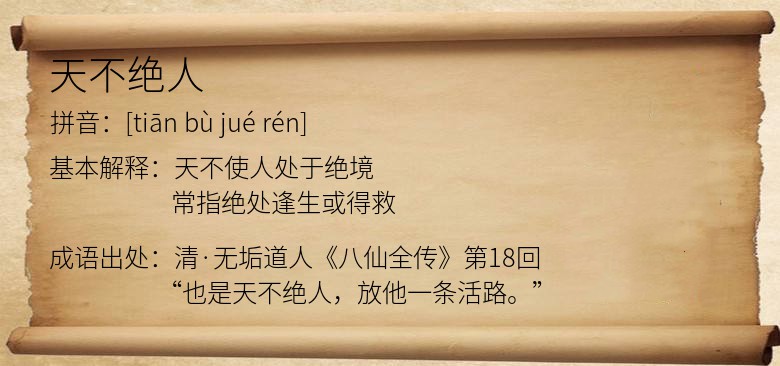 天不绝人
拼音：[tiān bù jué rén]
基本解释：天不使人处于绝境
常指绝处逢生或得救
成语出处：清·无垢道人《八仙全传》第18回
“也是天不绝人，放他一条活路。”